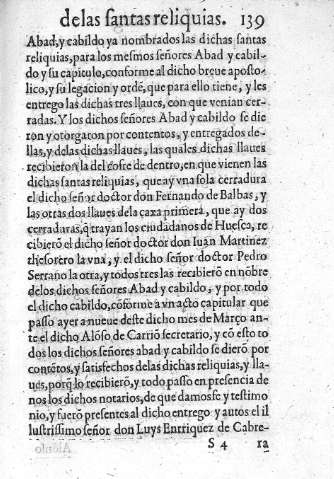 delas santas reliquias. 139
Abad, y cabildo ya nombrados las dichas santas
reliquias, para los mesmos señores Abad y cabil-
do y su capitulo, conforme al dicho breue aposto-
lico, y su legacion y ordẽ, que para ello tiene, y les
entrego las dichas tres llaues, con que venian cer-
radas. Y los dichos señores Abad y cabildo se die
ron y otorgaron por contentos, y entregados de-
llas, y delas dichas llaues, las quales dichas llaues
recibieron la del cofre de dentro, en que vienen las
dichas santas reliquias, que ay vna sola cerradura
el dicho señor doctor don Fernando de Balbas, y
las otras dos llaues dela caxa primera, que ay dos
cerraduras, q̃ trayan los ciudadanos de Huesca, re
cibierõ el dicho señor doctor don Iuan Martinez
thesorero la vna, y el dicho señor doctor Pedro
Serrano la otra, y todos tres las recibierõ en nõbre
delos dichos señores Abad y cabildo, y por todo
el dicho cabildo, cõforme a vn acto capitular que
passo ayer a nueue deste dicho mes de Março an-
te el dicho Alõso de Carriõ secretario, y cõ esto to
dos los dichos señores abad y cabildo se dierõ por
contẽtos, y satisfechos delas dichas reliquias, y lla-
ues, porq̃ lo recibierõ, y todo passo en presencia de
nos los dichos notarios, de que damos fe y testimo
nio, y fuerõ presentes al dicho entrego y autos el il
lustrissimo señor don Luys Enrriquez de Cabre-
S 4 ra